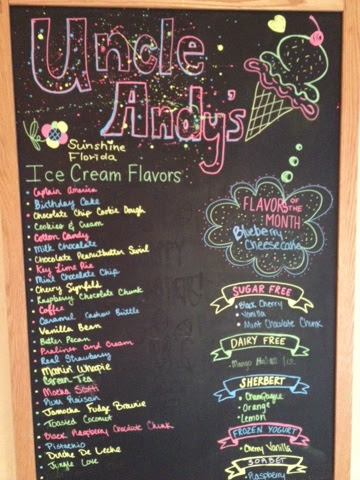 Uncle
Andy's
Sunshine
Florida
Ice Cream Flavors
Captain America
Birthday Cake
Chocolate Chip Cookie Dough
Cookies & Cream
Cotton Candy
Milk Chocolate
Chocolate Peanutbutter Swirl
Key Lime Pie
Mint Chocolate Chip
Cherry
Raspberry Chocolate Chunk
Coffee
Caramel Cashew Brittle
Vanilla Bean
Butter Pecan
Pralines and Cream
Real Strawberry
Green Tea
Mocha
Rum Raisin
Jamocha Fudge Brownie
Toasted Coconut
Black Raspberry Chocolate Chunk
Pistachio
Dulche De Leche
Jungle Love
FLAVOR OF THE
MONTH
Blueberry
Cheesecake
SUGAR FREE
Black Cherry
Vanilla
Mint Chocolate Chunk
DAIRY FREE
Mango Ice
SHERBERT
Champagne
Orange
Lemon
FROZEN YOGURT
Cherry Vanilla
SORBET
Raspberry